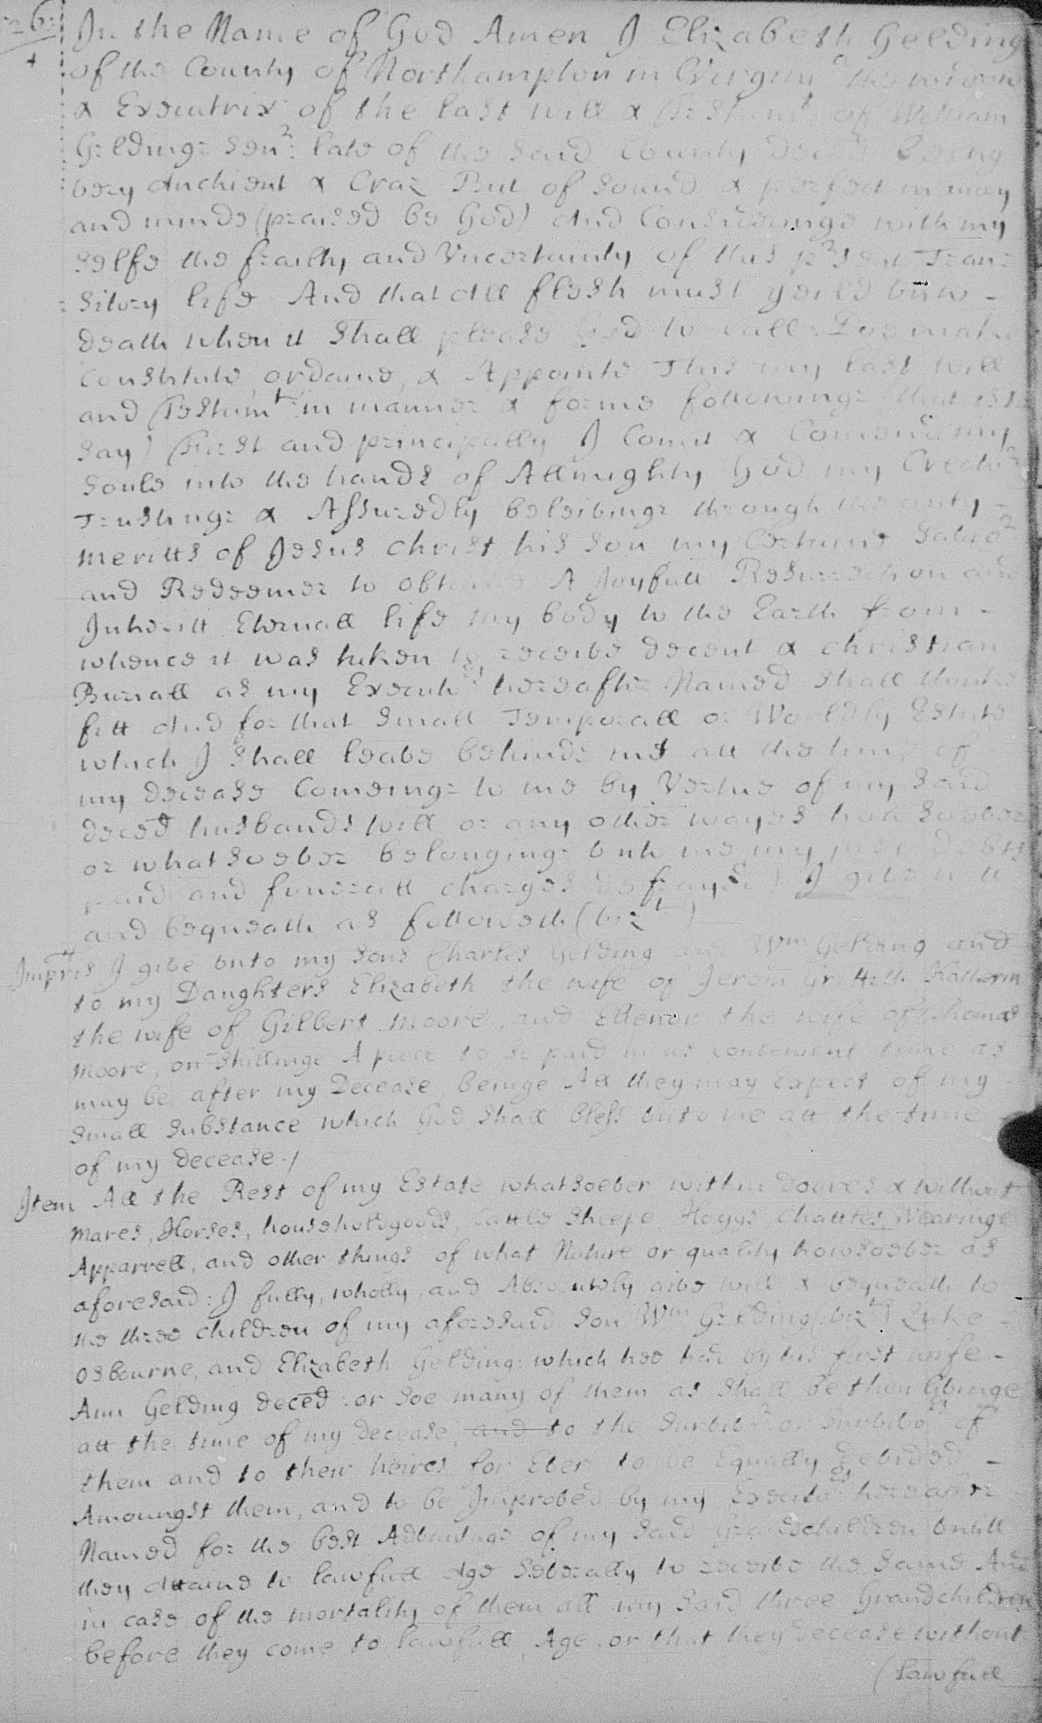 26:
In the Name of God Amen I Elizabeth Gelding
of the County of Northampton in Virginia the widdow
& Executrix of the last will & Testamt of William
Geldinge Senr: late of the said County decd being
very Anchient & Craz But of sound & perfect memory
and minde (praised be God) And Consideringe with my
selfe the frailty and Vncertainty of this prsent Tran=
sitory life And that All flesh must yeild vnto -
death when it shall please God to call Doe make
Constitute ordaine, & Appointe This my last will
and Testamt in manner & forme followinge that is to
say) First and principally I Comit & Comend my
soule into the hands of Allmighty God my Creator
Trustinge & Assuredly beleivinge through the only -
meritts of Jesus Christ his son my Savior
and Redeemer to obtaine A Joyfull Resurrection and
Inheritt Eternall life my body to the Earth from -
whence it was taken to receive decent & christian
Buriall as my Executrs hereafter Named shall thinke
fitt And for that small Temporall or Worldly Estate
which I shall leave behinde me att the time of
my decease Comeinge to me by Vertue of my said
deced husbands will or any other wayes how soever
or whatsoever belonginge vnto me my just debts
paid and funerall charges defrayed) I give will
and bequeath as followeth (vizt)
Impris I give vnto my sons Charles Gelding and Wm Gelding and
to my Daughters Elizabeth the wife of Jerom Griffith Katherin
the wife of Gilbert Moore, and Ellenor the wife of Thomas
Moore, on shillinge A peece to be paid in as convenient time as
may be after my Decease beinge All they may expect of my
small substance which God shall bless vnto me att the time
of my decease./
Item All the Rest of my Estate whatsoever within doores & without
Mares, Horses, householdgoods, Cattle Sheepe Hoggs Chattles, Wearinge
Apparrell, and other things of what Nature or quality howsoever as
aforesaid: I fully, wholly, and Absolutely give will & bequeath to
the three children of my aforesaid son Wm Gelding, vizt Luke -
Osbourne, and Elizabeth Gelding: which hee had by his first wife -
Ann Gelding deced: or soe many of them as shall be then livinge
att the time of my decease, and to the survivor or survivors of
them and to their heires for Ever to be Equally devided -
Amoungst them, and to be Improved by my Executrs hereafter
Named for the best Advantage of my said Grandchildren vntill
they Attaine to lawfull Age severally to receive the same And
in case of the mortality of them all my said three Grandchildren
before they come to lawfull Age or that they decease without
(lawfull